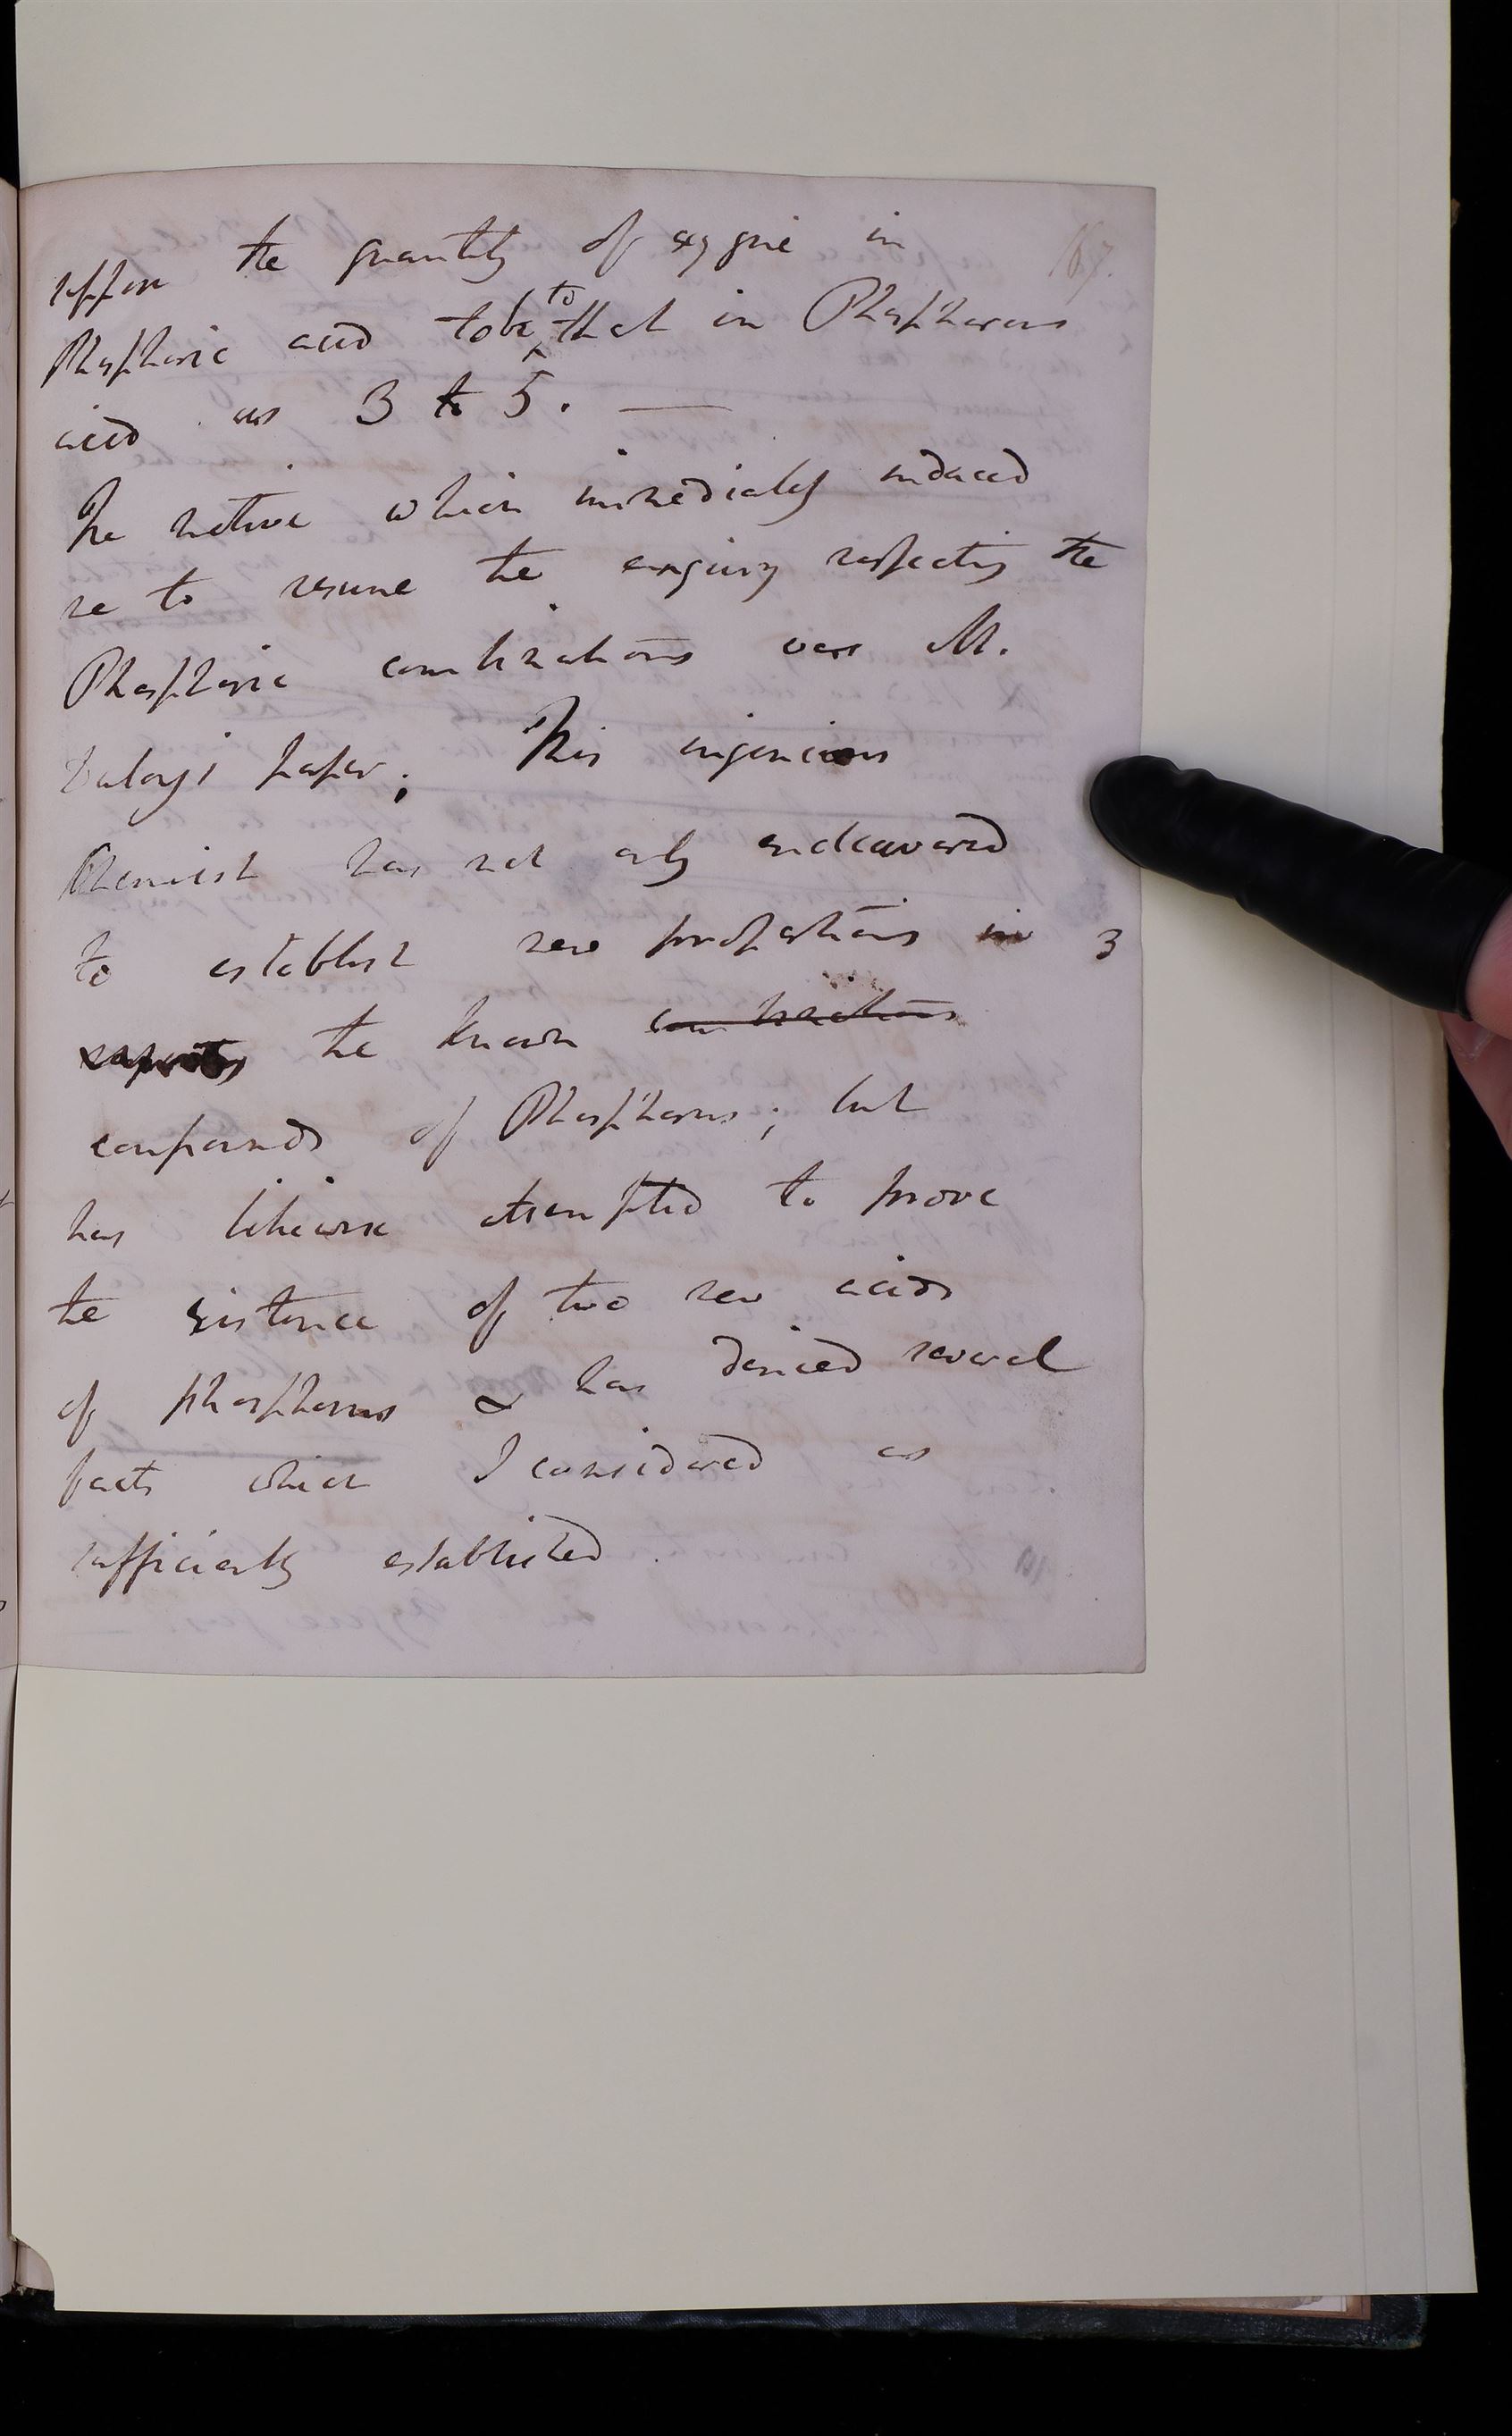 suppose the quantity of oxygene in 167.
Phosphoric acid to be to that in Phosphorous
acid as 3 to 5. —
The motive which immediately induced
me to resume the enquiry respecting the
Phosphoric combinations was M.
Dulong's paper; This ingenious
Chemist has not only endeavoured
to establish new proportions in 3
the known combinations
compounds of Phosphorus; but
has likewise attempted to prove
the existence of two new acids
of phosphorus & has denied several
facts which I considered as
sufficiently established.